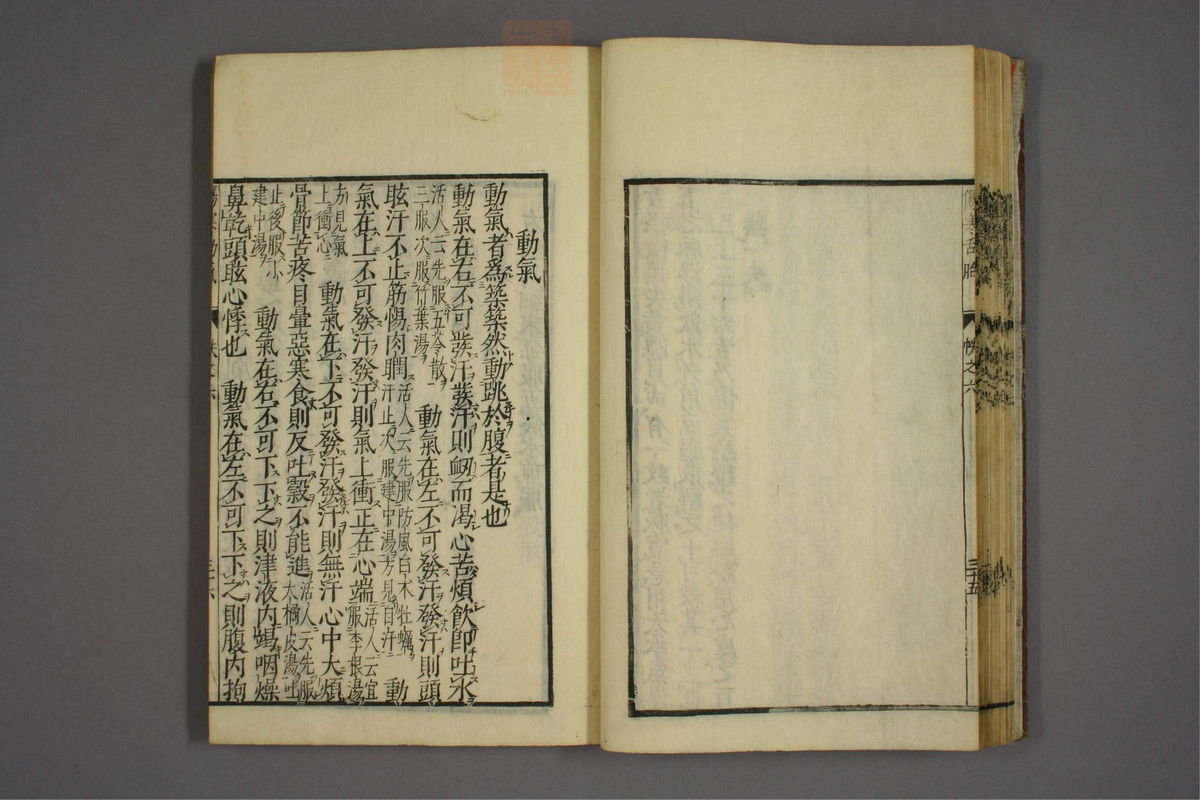 巻之六
三十五
動氣
動氣者爲築築然動跳於腹者是也
動氣在右不可發汗發汗則衂而渴心苦煩飲卽吐水
活人云先服五苓散
二三服次服竹葉湯
動氣在左不可發汗發汗則頭
眩汗不止筋惕肉瞤
活人云先服防風白朮牡蠣
汗止次服建中湯方見自汗
動
氣在上不可發汗發汗則氣上衝正在心端
活人云宜
服李根湯
方見氣
上衝心
動氣在下不可發汗發汗則無汗心中大煩
骨節苦疼目暈惡寒食則反吐穀不能進
活人云先服
大橘皮湯吐
止後服小
建中湯
動氣在右不可下下之則津液內竭咽燥
鼻乾頭眩心悸也
動氣在左不可下下之則腹內拘